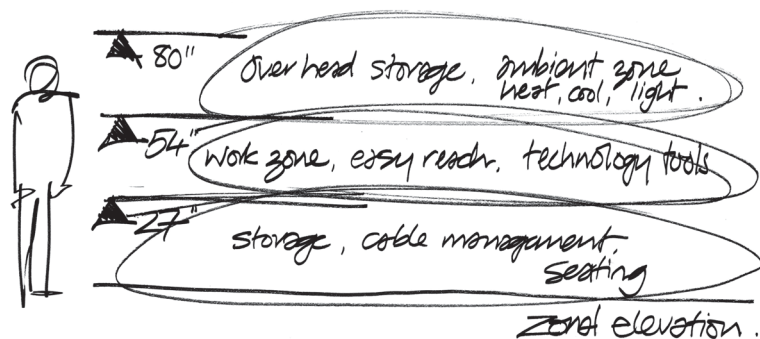 80"
overhead storage, ambient zone
heat, cool, light.
54"
work zone, easy reach, technology tools
27"
storage, cable management,
seating
zonal elevation.